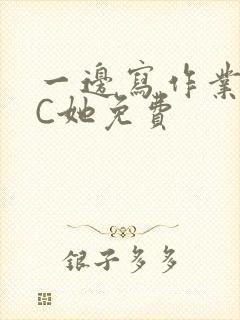 一邊寫作業
C她免費
銀子多多